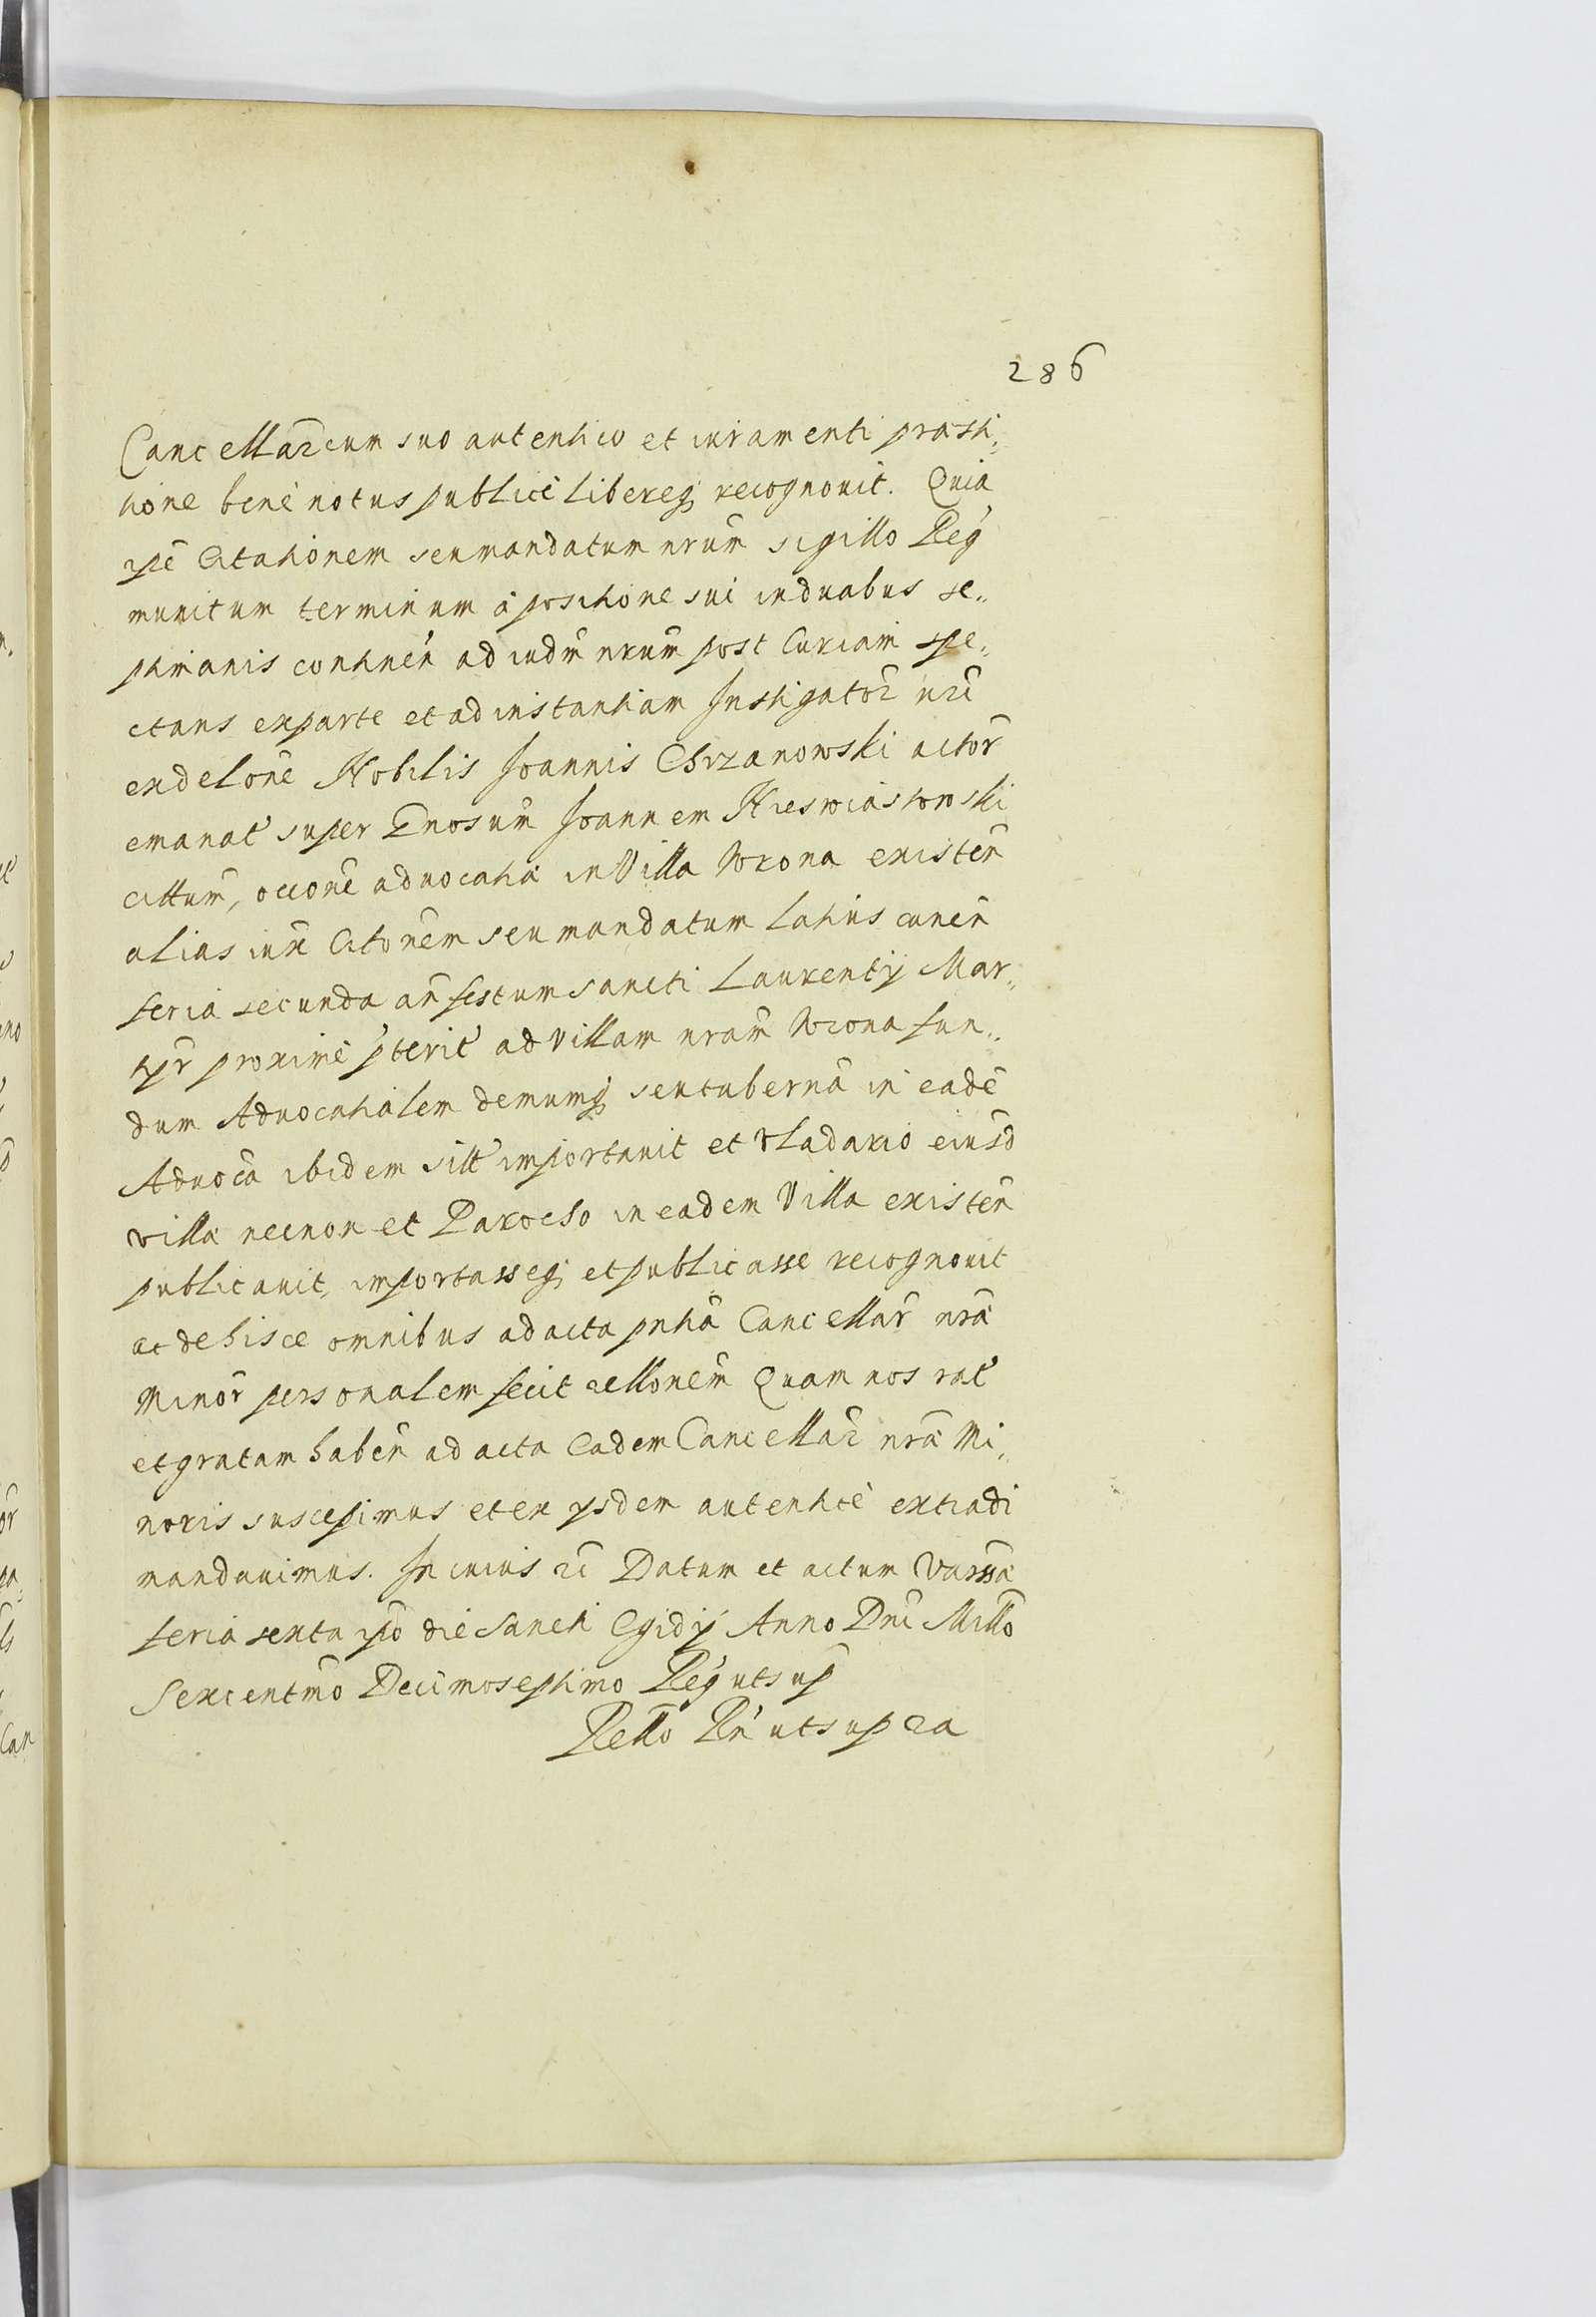 286
Cancellar̃ cum suo autentico et iuramenti præsti„
tione benè notus publicè libereq́ recognouit. Quia
ipẽ Citationem seu mandatum nrũm sigillo Reg̃
munitum terminum à positione sui in duabus se„
ptimanis continẽn ad iudm̃ nrũm post Curiam spe„
ctans ex parte et ad instantiam Instigator̃ nrĩ
ex delõne Nobilis Joannis Chrzanowski actor̃
emanat̃ super Gnõsum Joannem
cittum̃, occõne aduocatiæ in Villa Wrona existeñ
alias iuxẽ Citõnem seu mandatum latius canẽn
feria secunda añ festum sancti Laurentij Mar„
tyr̃ proximè p̃terit̃ ad Villam nrãm Wrona fun„
dum Aduocatialem demumq́ seu tabernã in eadẽ
Aduocã ibidem sitt̃ importauit et vladario eiusd̃
villæ necnon et Parocho in eadem Villa existeñ
publicauit, importasseq́ et publicasse recognouit
ac de hisce omnibus ad acta pñtiã Cancellar̃ nræ̃
Minor̃ personalem fecit rellõnem̃ Quam nos rat̃
et gratam habeñ ad acta Eadem Cancellar̃ nræ̃ Mi„
noris suscepimus et ex ysdem autenticè extradi
mandauimus. In cuius rẽi Datum et actum Varssæ̃
feria sexta ipõ die Sancti Egidij Anno Dnĩ Millõ
Sexcentmõ Decimoseptimo Reg̃ ut sup̃
Rellõ Rñ ut supra